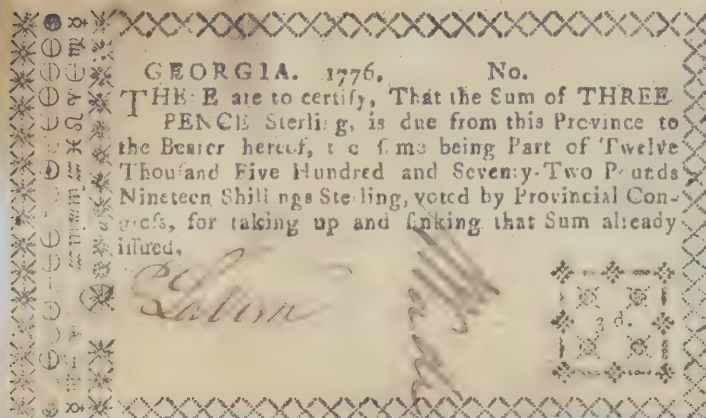 GEORGIA. 1776, No.
THESE are to certify, That the Sum of THREE
PENCE Sterling, is due from this Province to
the Bearer hereof, the ſame being Part of Twelve
Thouſand Five Hundred and Seventy-Two Pounds
Nineteen Shillings Sterling, voted by Provincial Con-
greſs, for taking up and ſinking that Sum already
iſſued,
3 d.